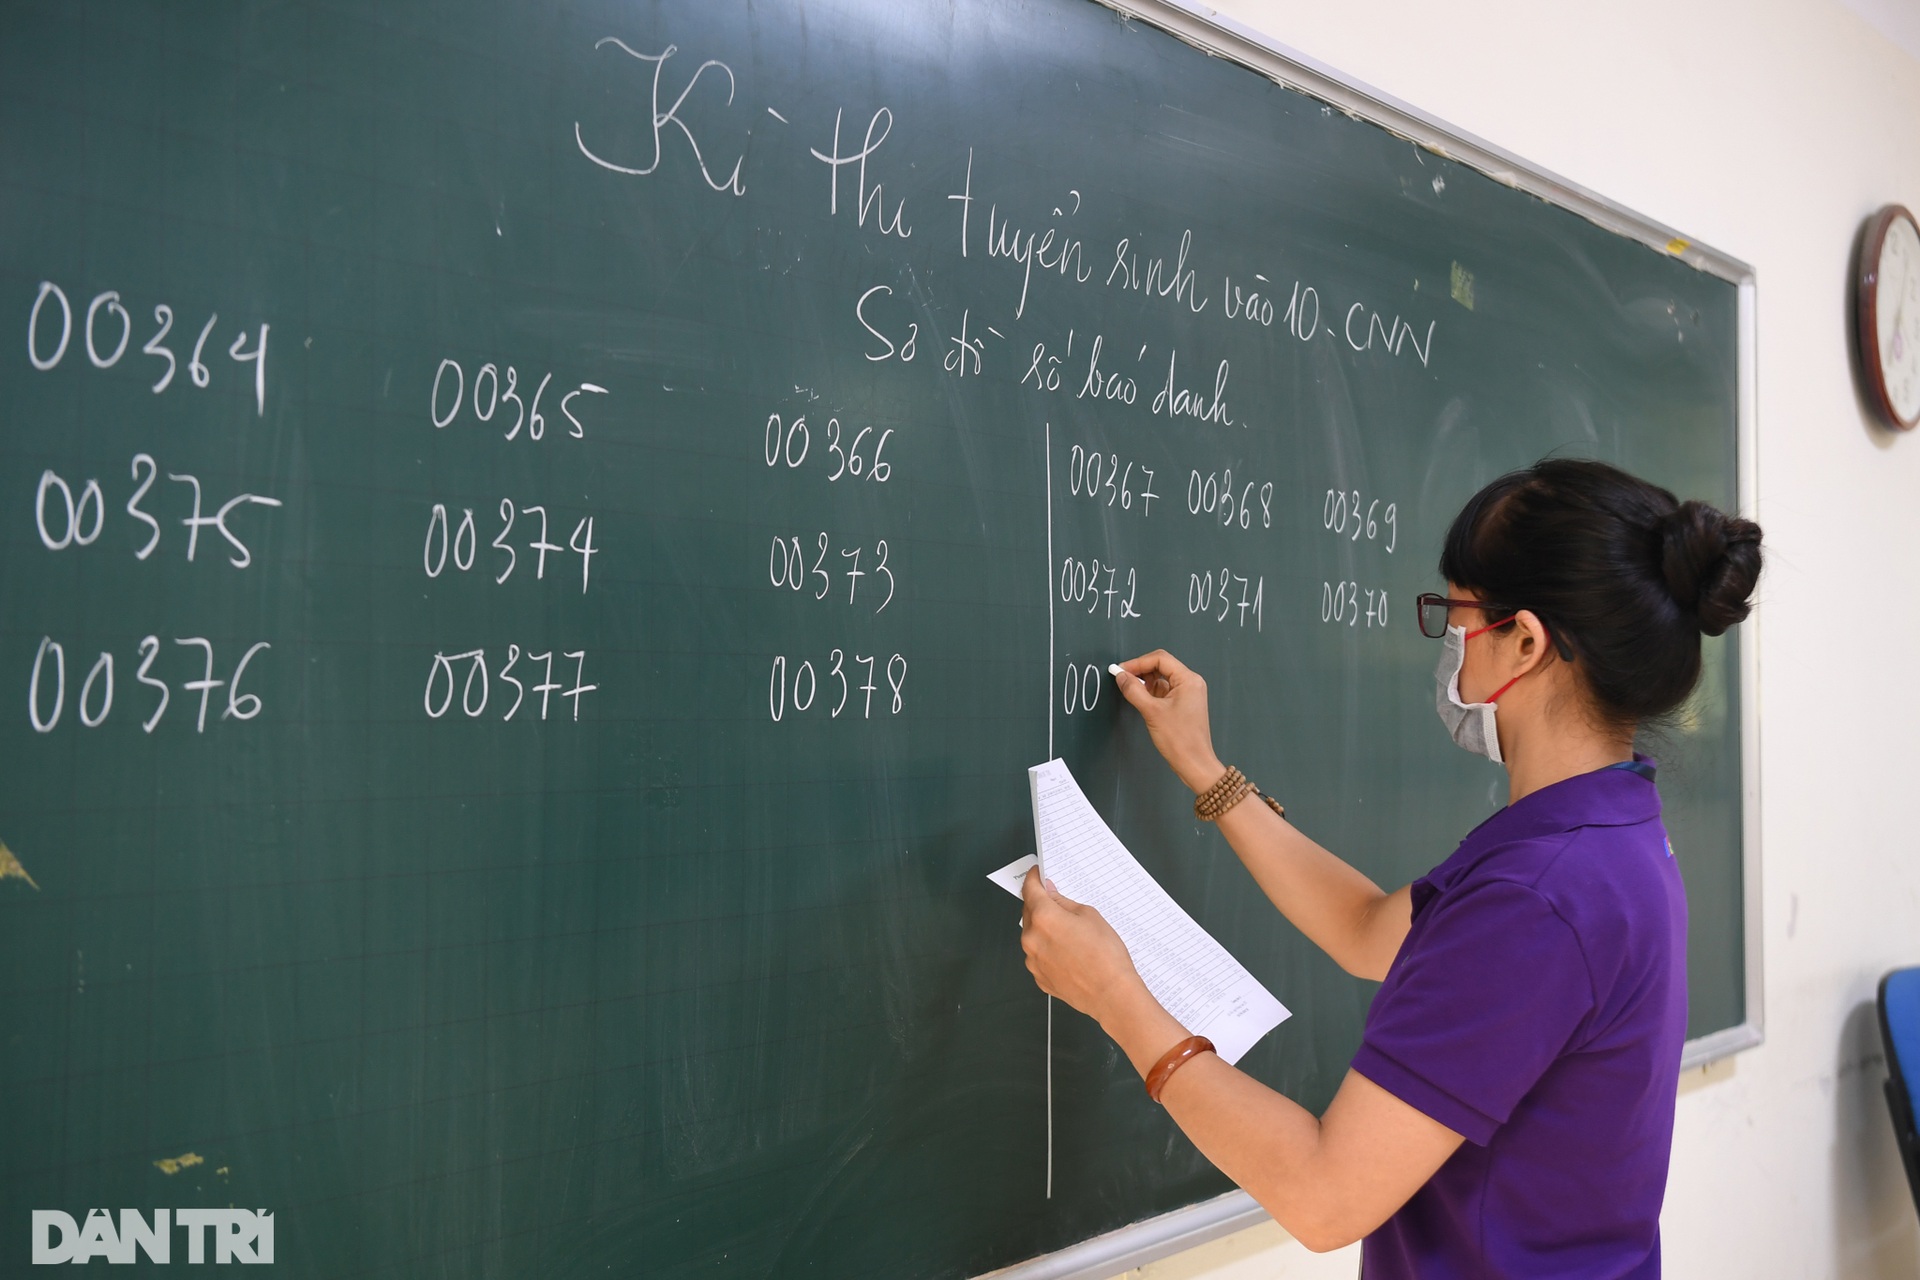 Kì thi tuyển sinh vào 10 - CNN
Sơ đồ số báo danh.
00364 00365 00366 00367 00368 00369
00375 00374 00373 00372 00371 00370
00376 00377 00378 00
DÂN TRÍ